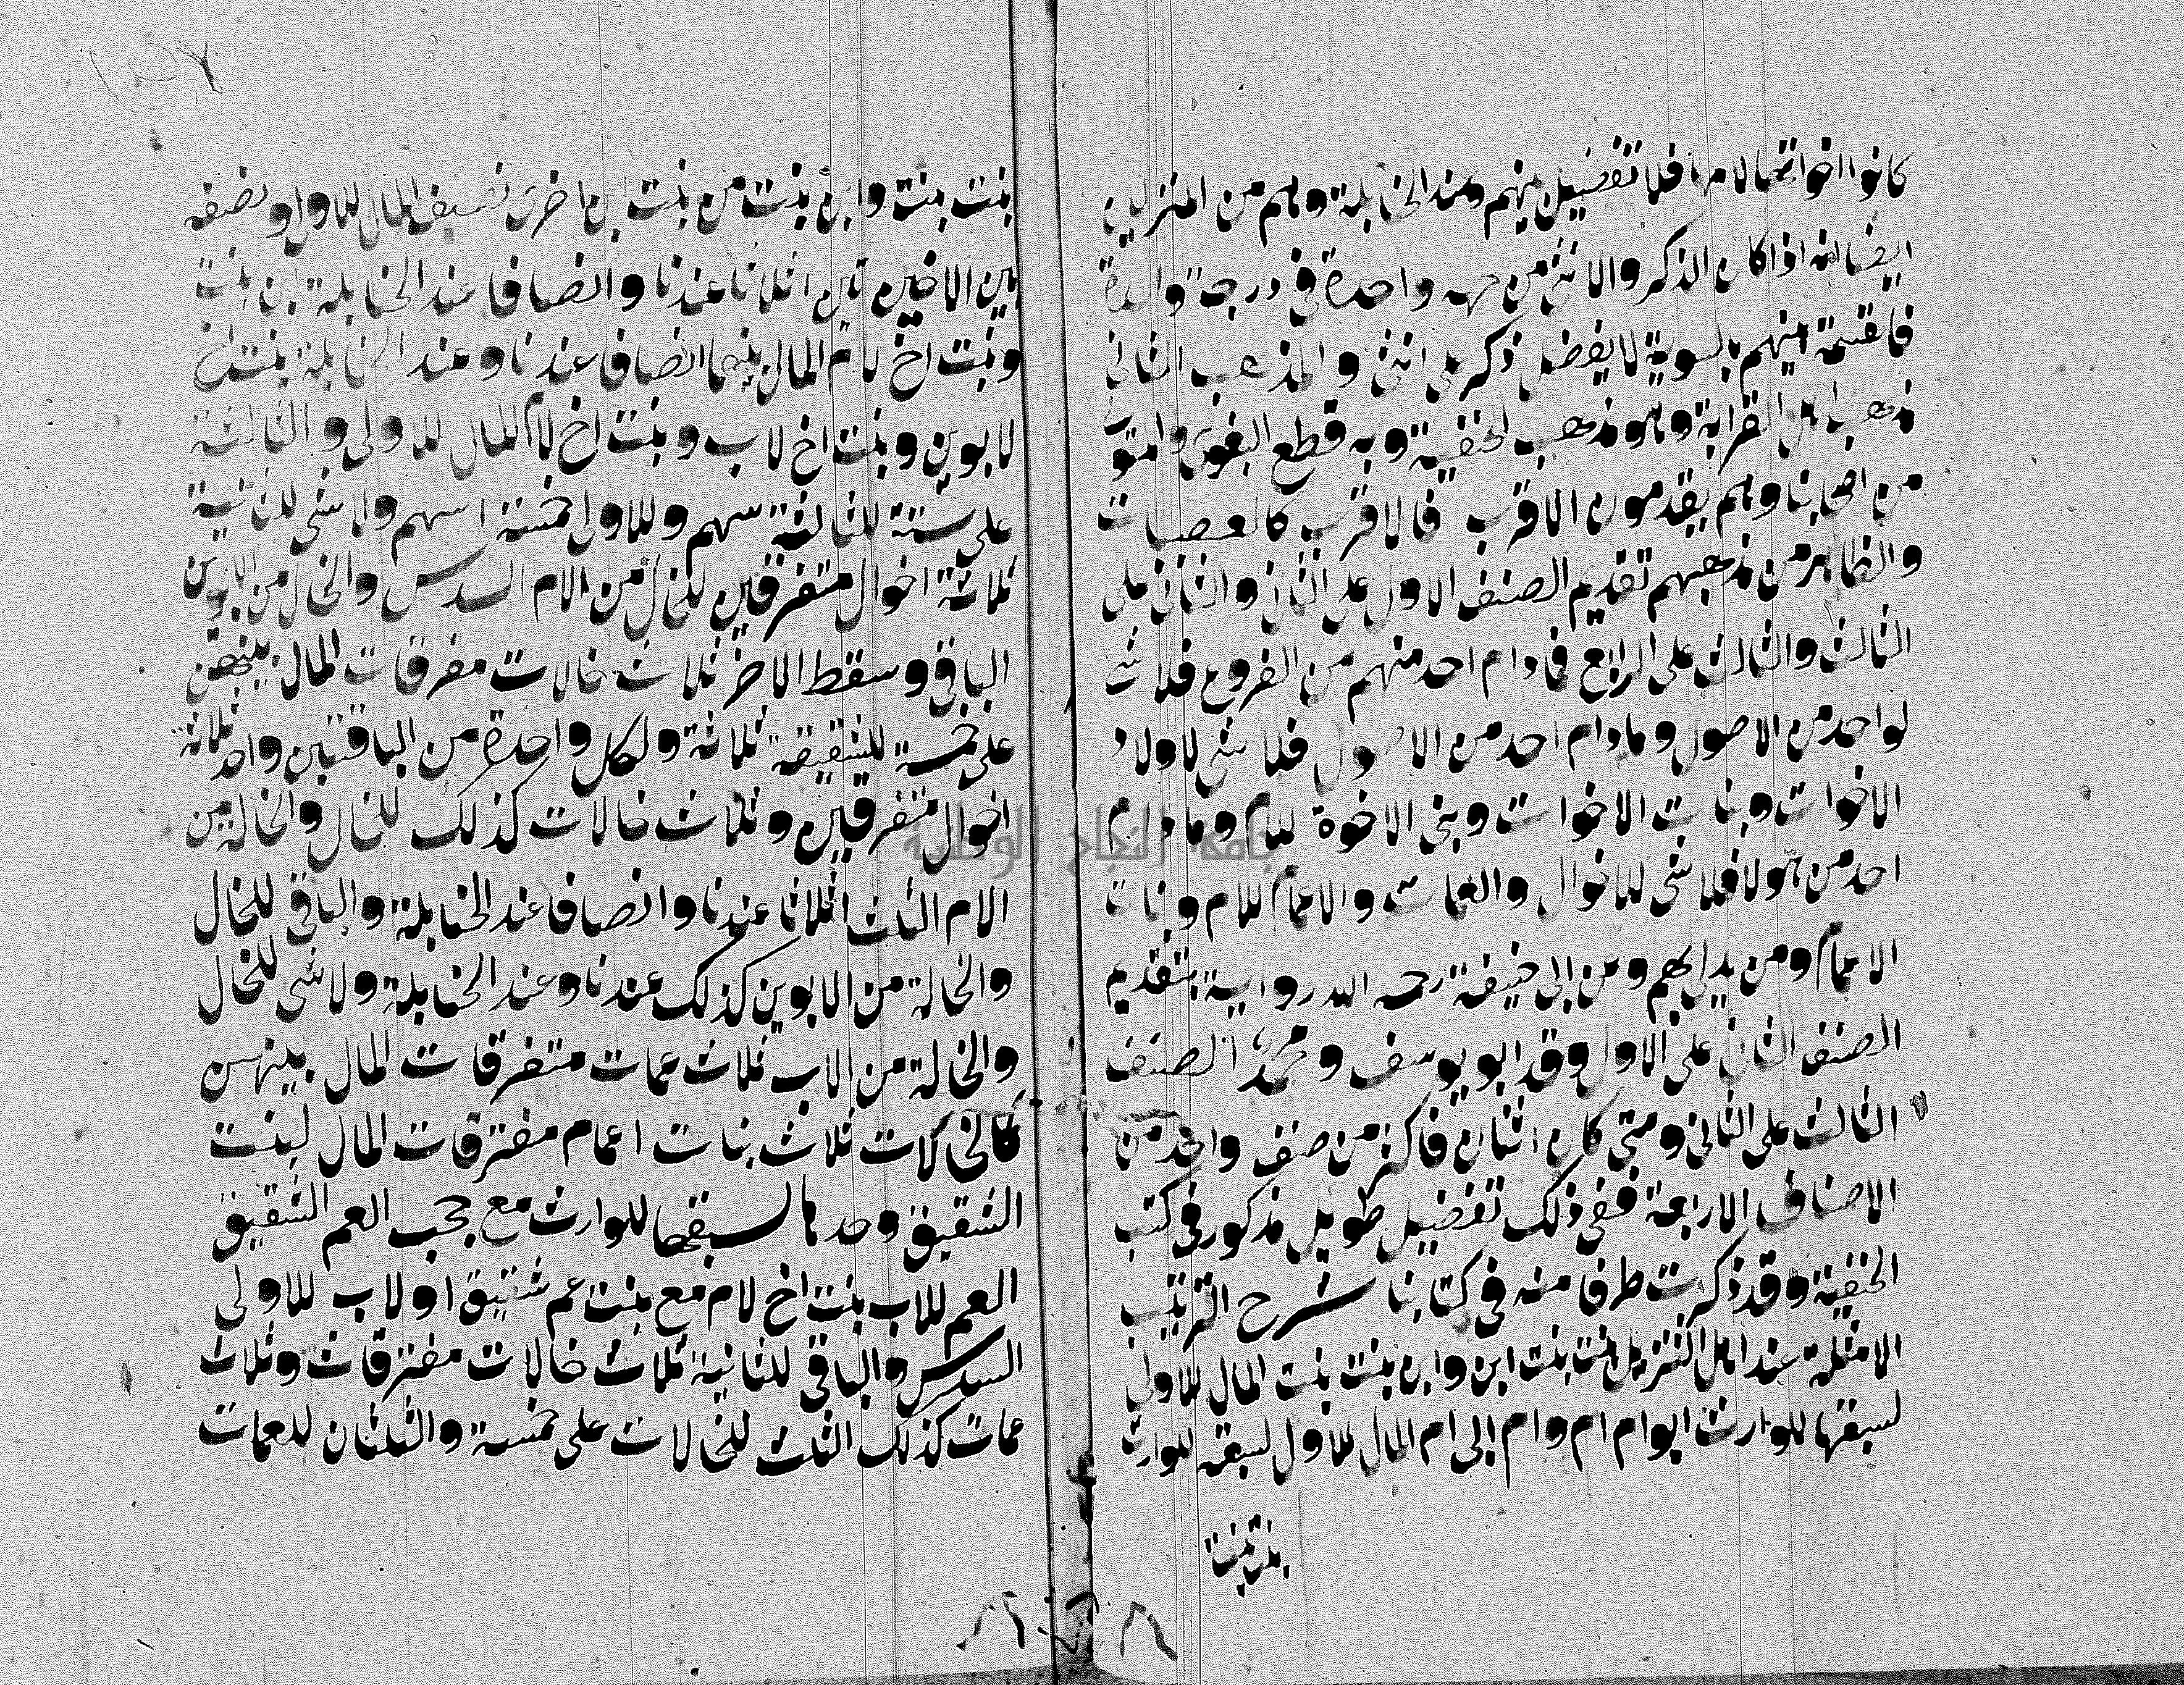 كانوا اخواتها لامها فلا تفضيل بينهم وعند الحنابلة وهم من المنزلين
ايضا انه اذا كان الذكر والانثى من جهه واحدة في درجة واحدة
فالقسمة بينهم بالسوية لا يفضل ذكر على انثى والمذهب الثانى
مذهب اهل القرابة وهو مذهب الحنفية وبه قطع البغوى والمتولى
من اصحابنا وهم يقدمون الاقرب فالاقرب كالعصبات
والظاهر من مذهبهم تقديم الصنف الاول على الثانى والثانى على
الثالث والثالث على الرابع فمادام احد منهم من الفروع فلا شى
لواحد من الاصول ومادام احد من الاصول فلا شى لاولاد
الاخوات وبنات الاخوات وبنى الاخوة للام ومادام
احد من هولا فلا شى للاخوال والعمات والاعمام للام وبنات
الاعمام ومن يدلى بهم وعن ابى حنيفة رحمه الله رواية بتقديم
الصنف الثانى على الاول وقدم ابو يوسف ومحمد الصنف
الثالث على الثانى ومتى كان اثنان فاكثر من صنف واحد من
الاصناف الاربعة ففى ذلك تفضيل طويل مذكور فى كتب
الحنفية وقد ذكرت طرفا منه فى كتابنا شرح الترتيب
الامثلة عند اهل التنزيل بنت بنت ابن وابن بنت بنت المال للاولى
لسبقها للوارث ابو ام ام وام ابى ام المال للاول لسبقه للوارث
بنت بنت
بنت بنت وابن بنت من بنت ابن اخرى نصيف المال للاولى ونصفه
بين الاخيرين اثلاثا عندنا وانصافا عند الحنابلة ابن بنت
وبنت اخ لام المال بينهما انصافا عندنا وعند الحنابلة بنت اخ
لابوين وبنت اخ لاب وبنت اخ لام المال للاولى والثالثة
على ستة للثالثة سهم وللاولى خمسة اسهم ولا شى للثانية
ثلاثة اخوال متفرقين للخال من الام السدس والخال من الابوين
الباقى وسقط الاخر ثلاث خالات مفرقات المال بينهن
على خمسة للشقيقة ثلاثة ولكل واحدة من الباقتين واحد ثلاثة
اخوال متفرقين وثلاث خالات كذلك للخال والخالة من
الام الثلث اثلاثا عندنا وانصافا عند الحنابلة والباقى للخال
والخالة من الابوين كذلك عندنا وعند الحنابلة ولا شى للخال
والخالة من الاب ثلاث عمات متفرقات المال بينهن
كالخالات ثلاث بنات اعمام مفترقات المال لبنت
الشقيق وحدها لسبقها للوارث مع حجب العم الشقيق
العم للاب بنت اخ لام مع بنت عم شقيق او لاب للاولى
السدس والباقى للثانية ثلاث خالات مفترقات وثلاث
عمات كذلك الثلث للخالات على خمسة والثلثان للعمات
جامعة النجاح الوطنية